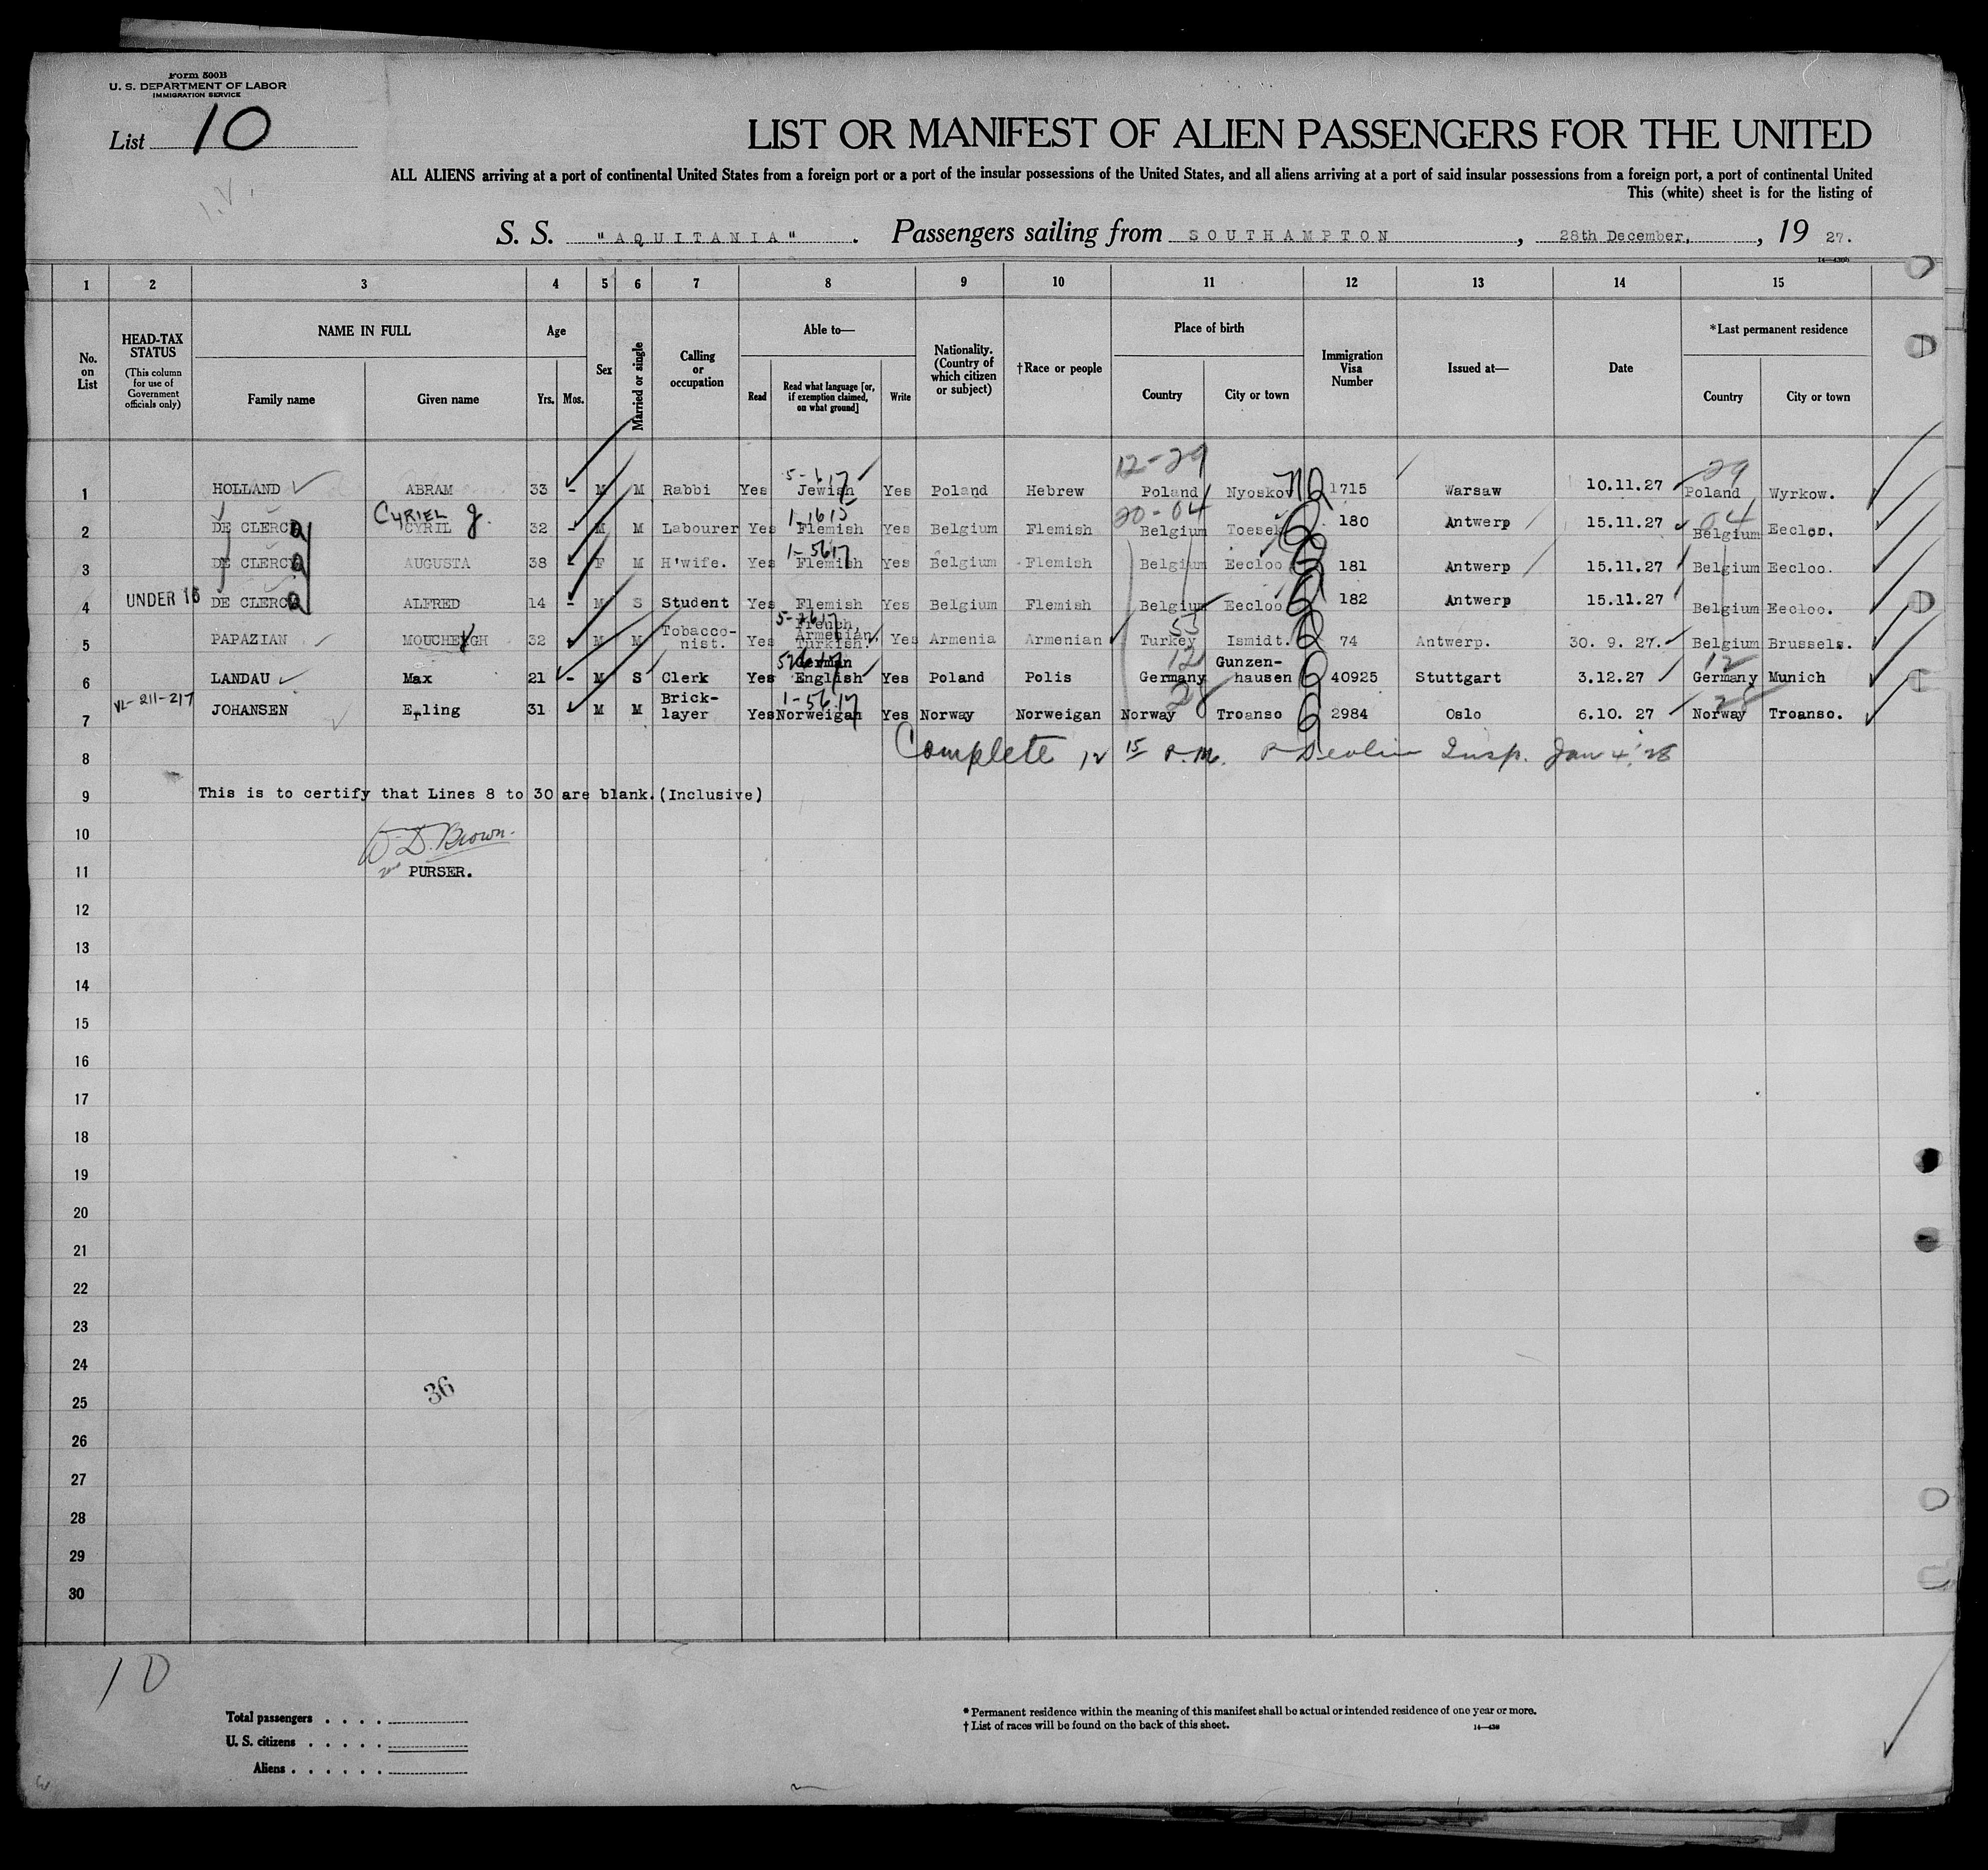 Form 500B
U. S. DEPARTMENT OF LABOR
IMMIGRATION SERVICE
List 10
LIST OR MANIFEST OF ALIEN PASSENGERS FOR THE UNITED
ALL ALIENS arriving at a port of continental United States from a foreign port or a port of the insular possessions of the United States, and all aliens arriving at a port of said insular possessions from a foreign port, a port of continental United
This (white) sheet is for the listing of
S. S. "AQUITANIA" . Passengers sailing from SOUTHAMPTON , 28th December, , 19 27.
1 2 3 4 5 6 7 8 9 10 11 12 13 14 15
No. on List
HEAD-TAX STATUS
(This column for use of Government officials only)
NAME IN FULL
Family name Given name
Age
Yrs. Mos.
Sex
Married or single
Calling or occupation
Able to—
Read
Read what language [or, if exemption claimed, on what ground]
Write
Nationality. (Country of which citizen or subject)
†Race or people
Place of birth
Country City or town
Immigration Visa Number
Issued at—
Date
*Last permanent residence
Country City or town
12-29 29
1 HOLLAND ABRAM 33 - M M Rabbi Yes Jewish Yes Poland Hebrew Poland Nyoskov 1715 Warsaw 10.11.27 Poland Wyrkow.
CYRIEL J. 20-04 04
2 DE CLERCQ CYRIL 32 - M M Labourer Yes Flemish Yes Belgium Flemish Belgium Toesek 180 Antwerp 15.11.27 Belgium Eecloo.
3 DE CLERCQ AUGUSTA 38 - F M H'wife. Yes Flemish Yes Belgium Flemish Belgium Eecloo 181 Antwerp 15.11.27 Belgium Eecloo.
4 UNDER 16 DE CLERCQ ALFRED 14 - M S Student Yes Flemish Yes Belgium Flemish Belgium Eecloo 182 Antwerp 15.11.27 Belgium Eecloo.
5 PAPAZIAN 32 M M Tobacco-nist. Yes French, Armenian, Turkish. Yes Armenia Armenian Turkey Ismidt. 74 Antwerp. 30. 9. 27. Belgium Brussels.
6 LANDAU Max 21 - M S Clerk Yes German English Yes Poland Polis Germany Gunzen-hausen 40925 Stuttgart 3.12.27 Germany Munich
7 VL-211-217 JOHANSEN Erling 31 M M Brick-layer Yes Norweigan Yes Norway Norweigan Norway Troanso 2984 Oslo 6.10. 27 Norway Troanso.
8 Complete 12 15 P.M. Devlin Insp. Jan 4, '28
9 This is to certify that Lines 8 to 30 are blank.(Inclusive)
10 D. Brown.
11 2nd PURSER.
12
13
14
15
16
17
18
19
20
21
22
23
24
36
25
26
27
28
29
30
10
Total passengers . . . .
U. S. citizens . . . . .
Aliens . . . . . .
* Permanent residence within the meaning of this manifest shall be actual or intended residence of one year or more.
† List of races will be found on the back of this sheet. 14—430